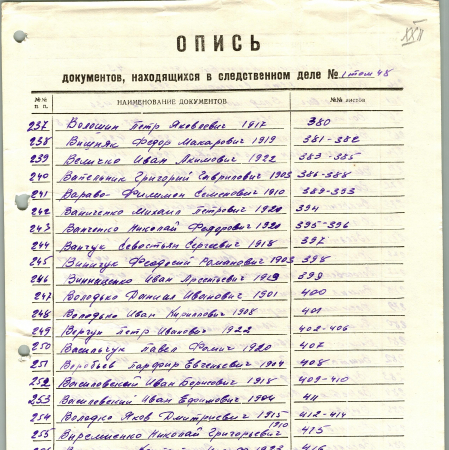 XXII
ОПИСЬ
документов, находящихся в следственном деле № 1 том 48
№№ п. п. НАИМЕНОВАНИЕ ДОКУМЕНТОВ №№ листов
237 Волошин Петр Яковлевич 1917 380
238 Вишняк Федор Макарович 1919 381-382
239 Величко Иван Акимович 1922 383-385
240 Вательник Григорий Гаврилович 1903 386-388
241 Варава Филимон Семенович 1910 389-393
242 Ванченко Михаил Петрович 1920 394
243 Ванченко Николай Федорович 1920 395-396
244 Ванчук Севостьян Сергеевич 1918 397
245 Винничук Феодосий Романович 1903 398
246 Винниченко Иван Арсентьевич 1919 399
247 Володько Даниил Иванович 1901 400
248 Володько Иван Кириллович 1908 401
249 Вергун Петр Иванович 1922 402-406
250 Васильчук Павел Фомич 1920 407
251 Воробьев Парфир Евгеньевич 1904 408
252 Василовский Иван Борисович 1918 409-410
253 Василевский Иван Ефимович 1904 411
254 Володко Яков Дмитриевич 1915 412-414
255 Николай Григорьевич 1910 415
416